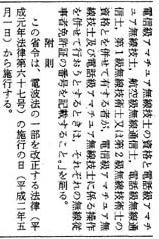 電信級アマチュア無線技士の資格と電話級アマチ
ュア無線技士、航空級無線通信士、電話級無線通
信士、第1級無線技術士又は第2級無線技術士の
資格とを併せて有する者が、電信級アマチュア無
線技士及び電話級アマチュア無線技士に係る操作
を併せて行おうとするときは、それぞれの無線従
事者免許証の番号を記載すること」を削る。
附 則
この省令は、電波法の一部を改正する法律（平
成元年法律第六十七号）の施行の日（平成二年五
月一日）から施行する。